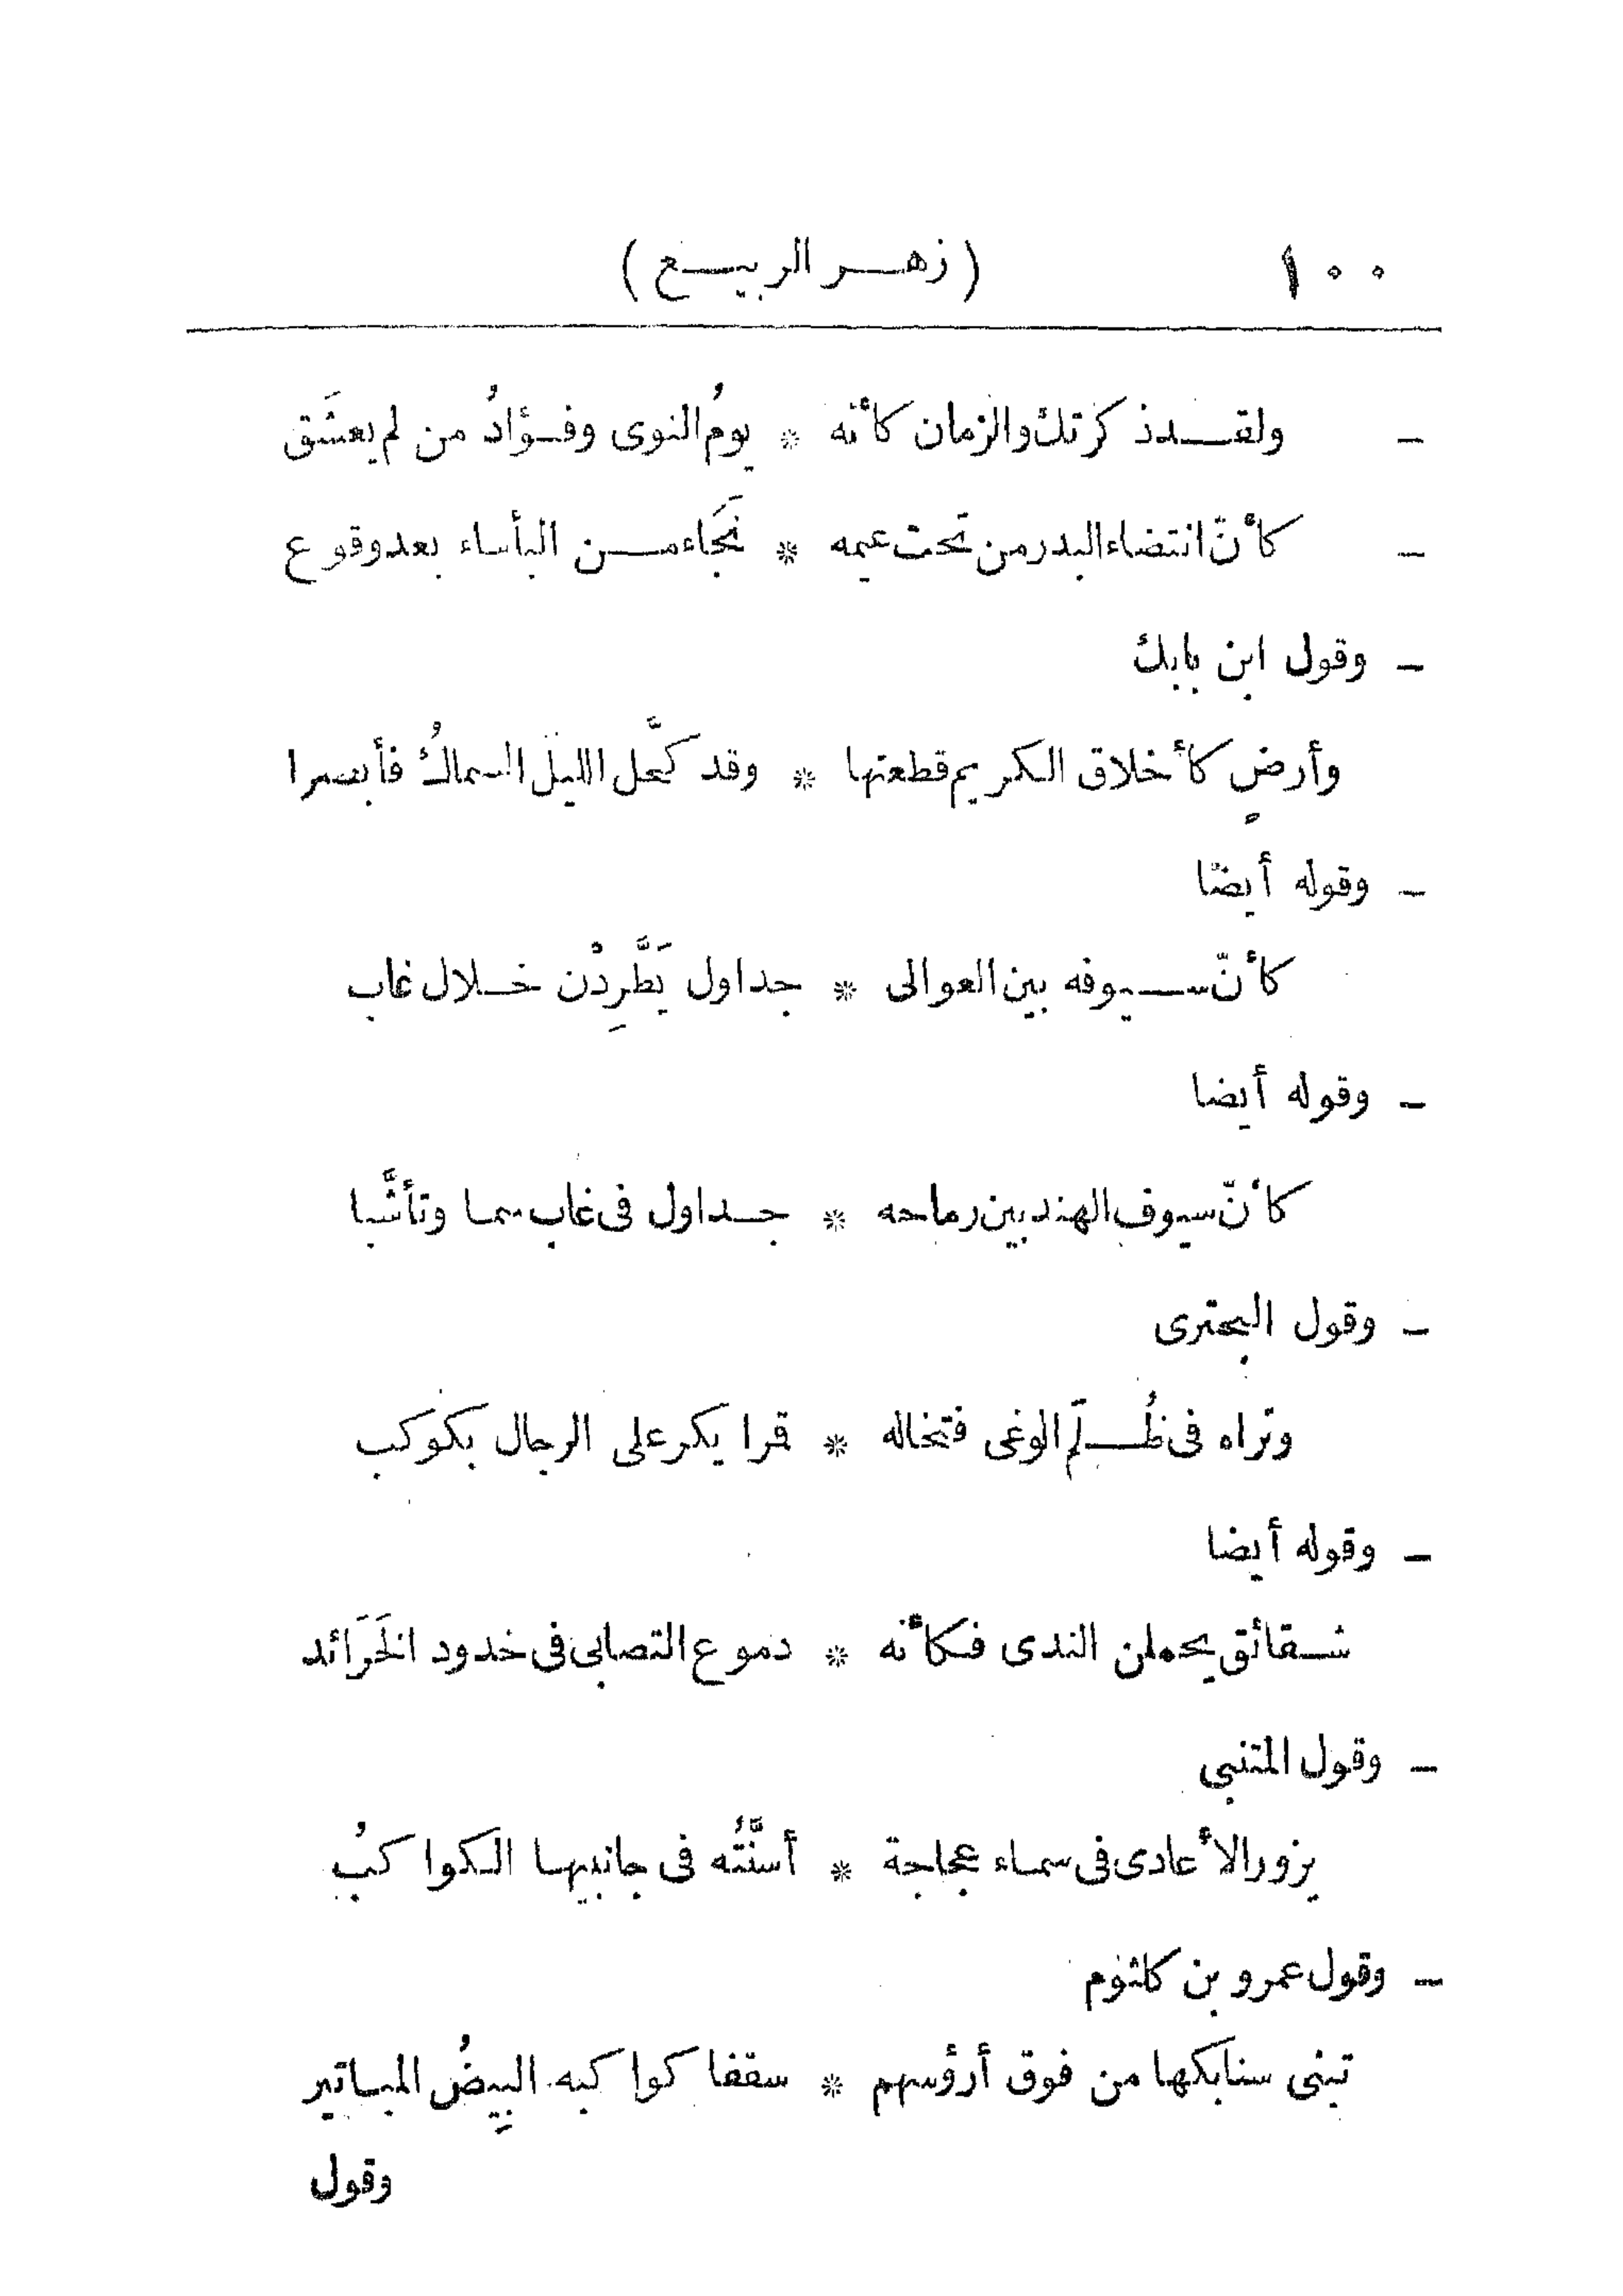 ١٠٠ (زهر الربيع)
– ولقد ذكرتك والزمان كأنه * يومُ النوى وفؤادُ من لم يعشَق
– كأنّ انتضاء البدر من تحت غيمه * نَجَاء من البأساء بعد وقوع
– وقول ابن بابك
وأرضٍ كأخلاق الكريم قطعتها * وقد كحَّل الليل السماكُ فأبصرا
– وقوله أيضًا
كأنّ سيوفه بين العوالى * جداول يَطَّرِدْن خلال غاب
– وقوله أيضا
كأنّ سيوف الهند بين رماحه * جداول فى غاب سما وتأشَّبا
– وقول البحترى
وتراه فى ظُلَم الوغى فتخاله * قمرا يكر على الرجال بكوكب
– وقوله أيضا
شقائق يحملن الندى فكأنه * دموع التصابى فى خدود الخَرَائد
– وقول المتنبى
يزور الأعادى فى سماء عجاجة * أسنَّتُه فى جانبيها الكواكبُ
– وقول عمرو بن كلثوم
تبنى سنابكها من فوق أرؤسهم * سقفا كواكبه البِيضُ المباتير
وقول